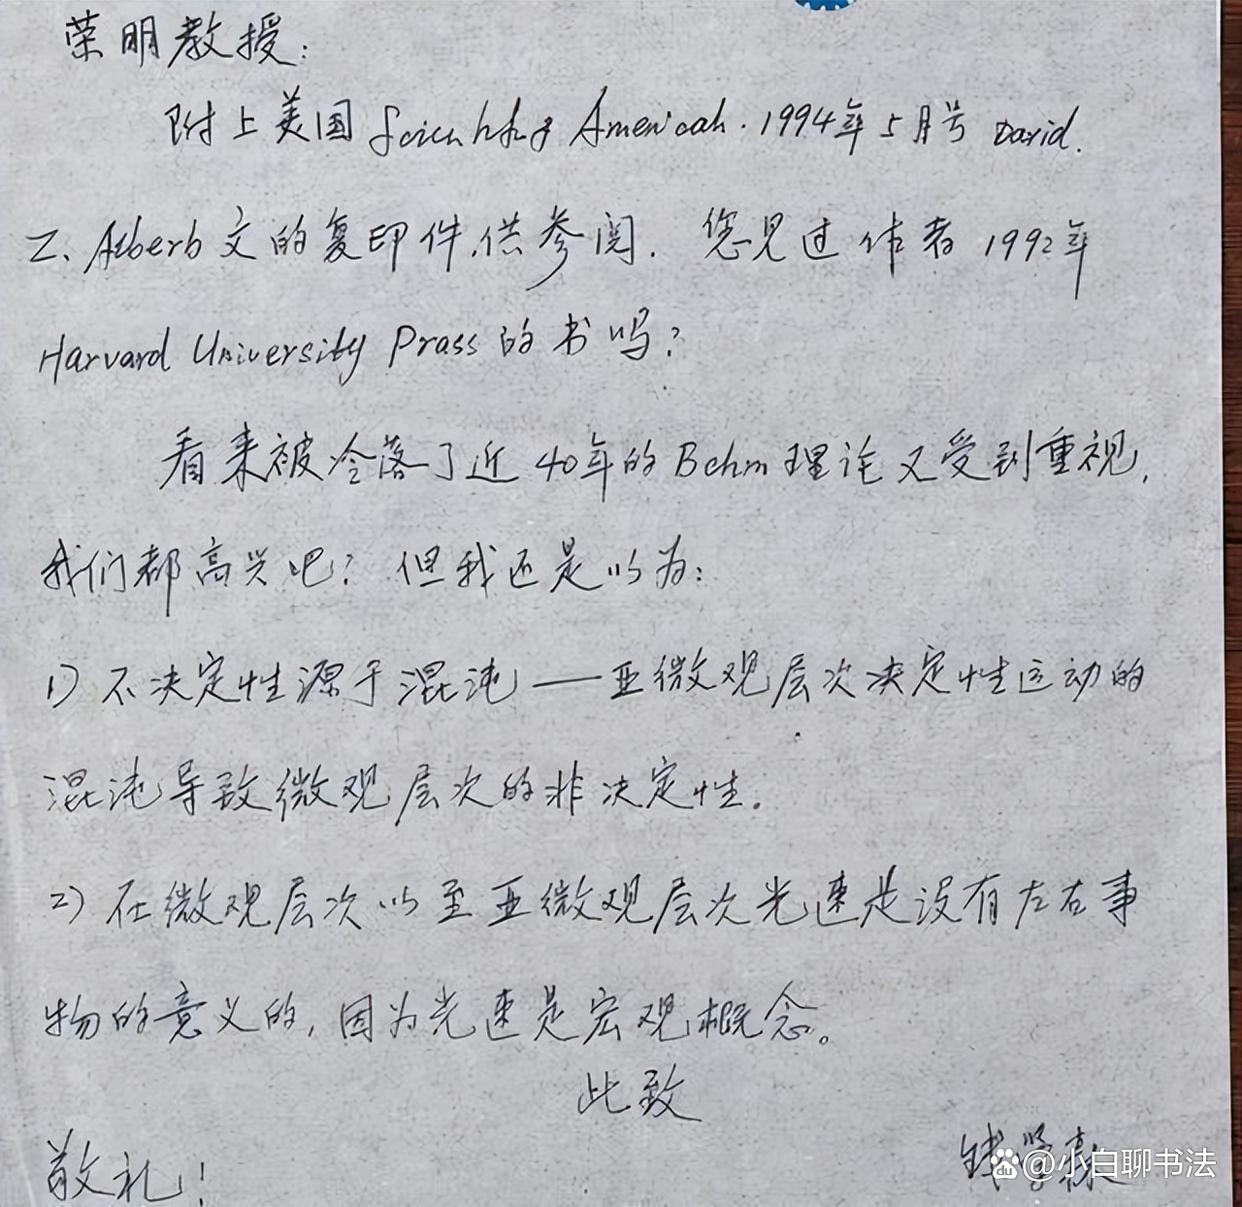 荣明教授：
附上美国 Scientific American. 1994年5月号 David.
Z. Albert 文的复印件,供参阅. 您见过作者1992年
Harvard University Prass 的书吗？
看来被冷落了近40年的Bohm理论又受到重视，
我们都高兴吧？但我还是以为：
1) 不决定性源于混沌——亚微观层次决定性运动的
混沌导致微观层次的非决定性。
2) 在微观层次以至亚微观层次光速是没有左右事
物的意义的，因为光速是宏观概念。
此致
敬礼！
钱学森
@小白聊书法